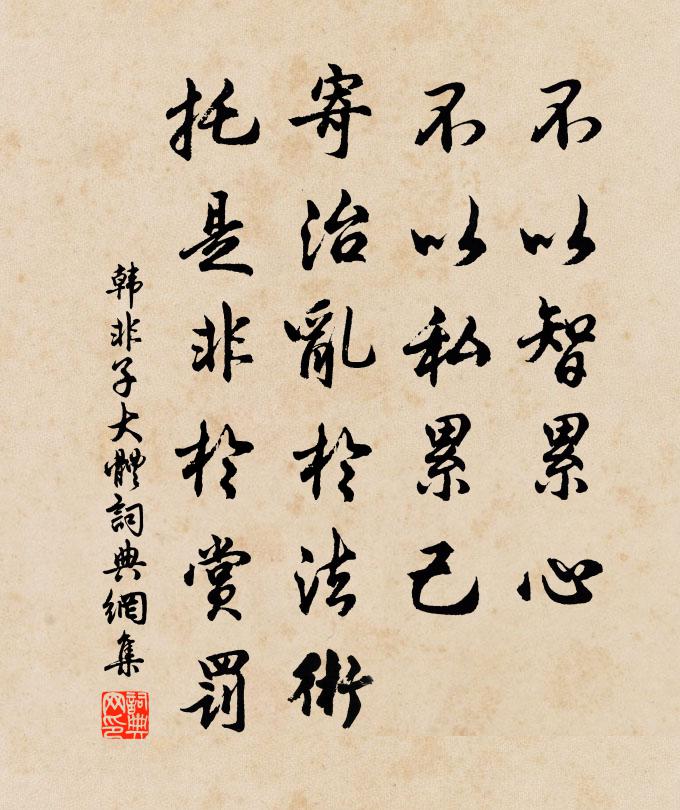 不以智累心
不以私累己
寄治亂於法術
托是非於賞罰
韩非子大體詞典網集
詞典网印